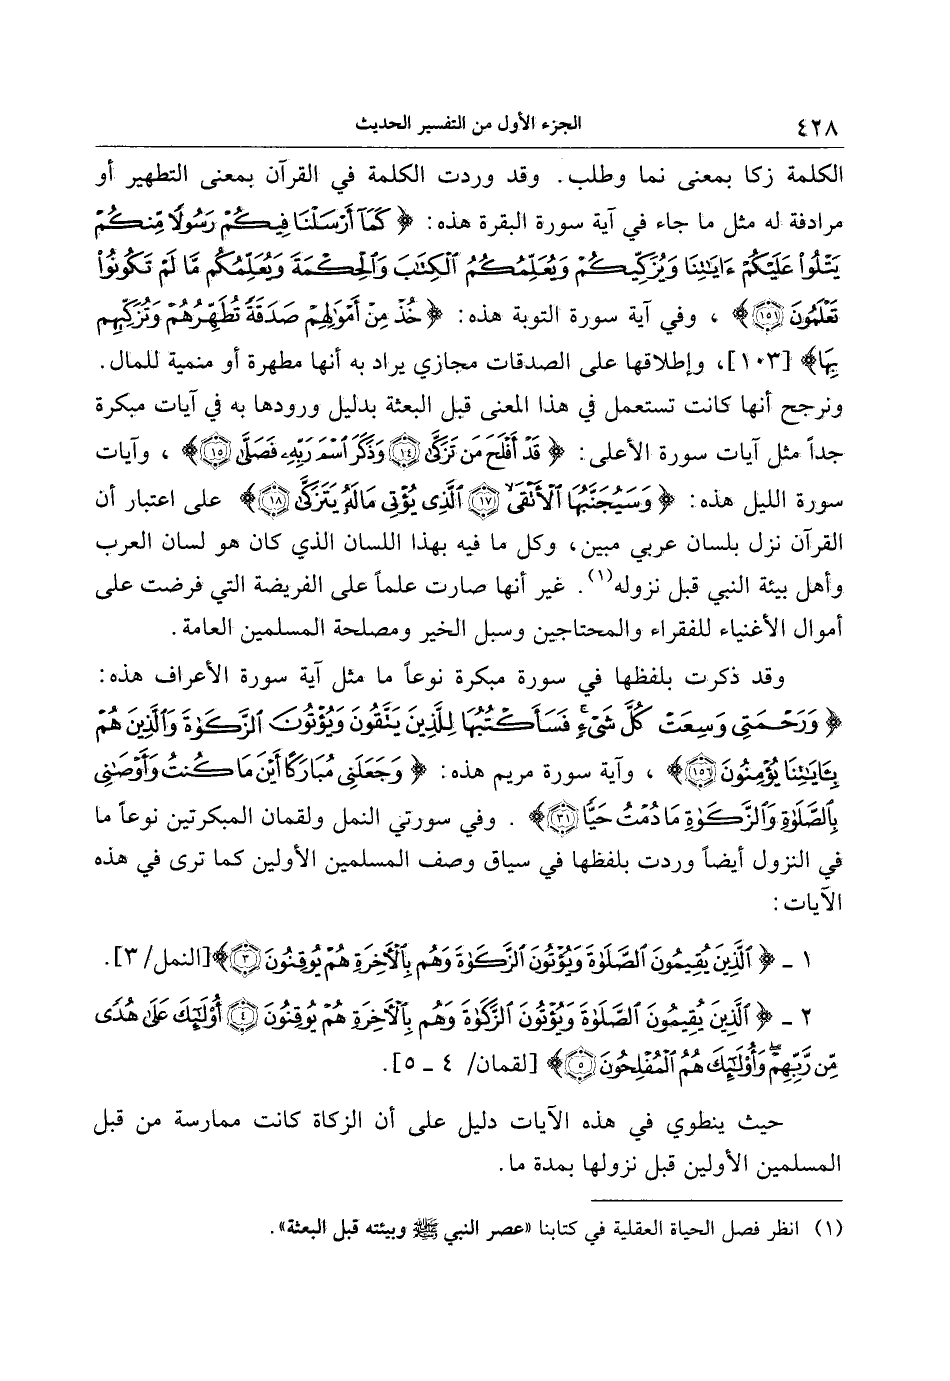 ٤٢٨ الجزء الأول من التفسير الحديث
الكلمة زكا بمعنى نما وطلب. وقد وردت الكلمة في القرآن بمعنى التطهير أو
مرادفة له مثل ما جاء في آية سورة البقرة هذه: ﴿ كَمَآ أَرۡسَلۡنَا فِيكُمۡ رَسُولٗا مِّنكُمۡ
يَتۡلُواْ عَلَيۡكُمۡ ءَايَٰتِنَا وَيُزَكِّيكُمۡ وَيُعَلِّمُكُمُ ٱلۡكِتَٰبَ وَٱلۡحِكۡمَةَ وَيُعَلِّمُكُم مَّا لَمۡ تَكُونُواْ
تَعۡلَمُونَ ١٥١﴾ ، وفي آية سورة التوبة هذه: ﴿ خُذۡ مِنۡ أَمۡوَٰلِهِمۡ صَدَقَةٗ تُطَهِّرُهُمۡ وَتُزَكِّيهِم
بِهَا﴾ [١٠٣]، وإطلاقها على الصدقات مجازي يراد به أنها مطهرة أو منمية للمال.
ونرجح أنها كانت تستعمل في هذا المعنى قبل البعثة بدليل ورودها به في آيات مبكرة
جداً مثل آيات سورة الأعلى: ﴿ قَدۡ أَفۡلَحَ مَن تَزَكَّىٰ ١٤ وَذَكَرَ ٱسۡمَ رَبِّهِۦ فَصَلَّىٰ ١٥﴾ ، وآيات
سورة الليل هذه: ﴿ وَسَيُجَنَّبُهَا ٱلۡأَتۡقَى ١٧ ٱلَّذِي يُؤۡتِي مَالَهُۥ يَتَزَكَّىٰ ١٨﴾ على اعتبار أن
القرآن نزل بلسان عربي مبين، وكل ما فيه بهذا اللسان الذي كان هو لسان العرب
وأهل بيئة النبي قبل نزوله(١). غير أنها صارت علماً على الفريضة التي فرضت على
أموال الأغنياء للفقراء والمحتاجين وسبل الخير ومصلحة المسلمين العامة.
وقد ذكرت بلفظها في سورة مبكرة نوعاً ما مثل آية سورة الأعراف هذه:
﴿ وَرَحۡمَتِي وَسِعَتۡ كُلَّ شَيۡءٖۚ فَسَأَكۡتُبُهَا لِلَّذِينَ يَتَّقُونَ وَيُؤۡتُونَ ٱلزَّكَوٰةَ وَٱلَّذِينَ هُم
بِـَٔايَٰتِنَا يُؤۡمِنُونَ ١٥٦﴾ ، وآية سورة مريم هذه: ﴿ وَجَعَلَنِي مُبَارَكًا أَيۡنَ مَا كُنتُ وَأَوۡصَٰنِي
بِٱلصَّلَوٰةِ وَٱلزَّكَوٰةِ مَا دُمۡتُ حَيّٗا ٣١﴾ . وفي سورتي النمل ولقمان المبكرتين نوعاً ما
في النزول أيضاً وردت بلفظها في سياق وصف المسلمين الأولين كما ترى في هذه
الآيات:
١ - ﴿ ٱلَّذِينَ يُقِيمُونَ ٱلصَّلَوٰةَ وَيُؤۡتُونَ ٱلزَّكَوٰةَ وَهُم بِٱلۡأٓخِرَةِ هُمۡ يُوقِنُونَ ٣﴾[النمل/ ٣].
٢ - ﴿ ٱلَّذِينَ يُقِيمُونَ ٱلصَّلَوٰةَ وَيُؤۡتُونَ ٱلزَّكَوٰةَ وَهُم بِٱلۡأٓخِرَةِ هُمۡ يُوقِنُونَ ٤ أُوْلَٰٓئِكَ عَلَىٰ هُدٗى
مِّن رَّبِّهِمۡۖ وَأُوْلَٰٓئِكَ هُمُ ٱلۡمُفۡلِحُونَ ٥﴾ [لقمان/ ٤ - ٥].
حيث ينطوي في هذه الآيات دليل على أن الزكاة كانت ممارسة من قبل
المسلمين الأولين قبل نزولها بمدة ما.
(١) انظر فصل الحياة العقلية في كتابنا «عصر النبي ﷺ وبيئته قبل البعثة».